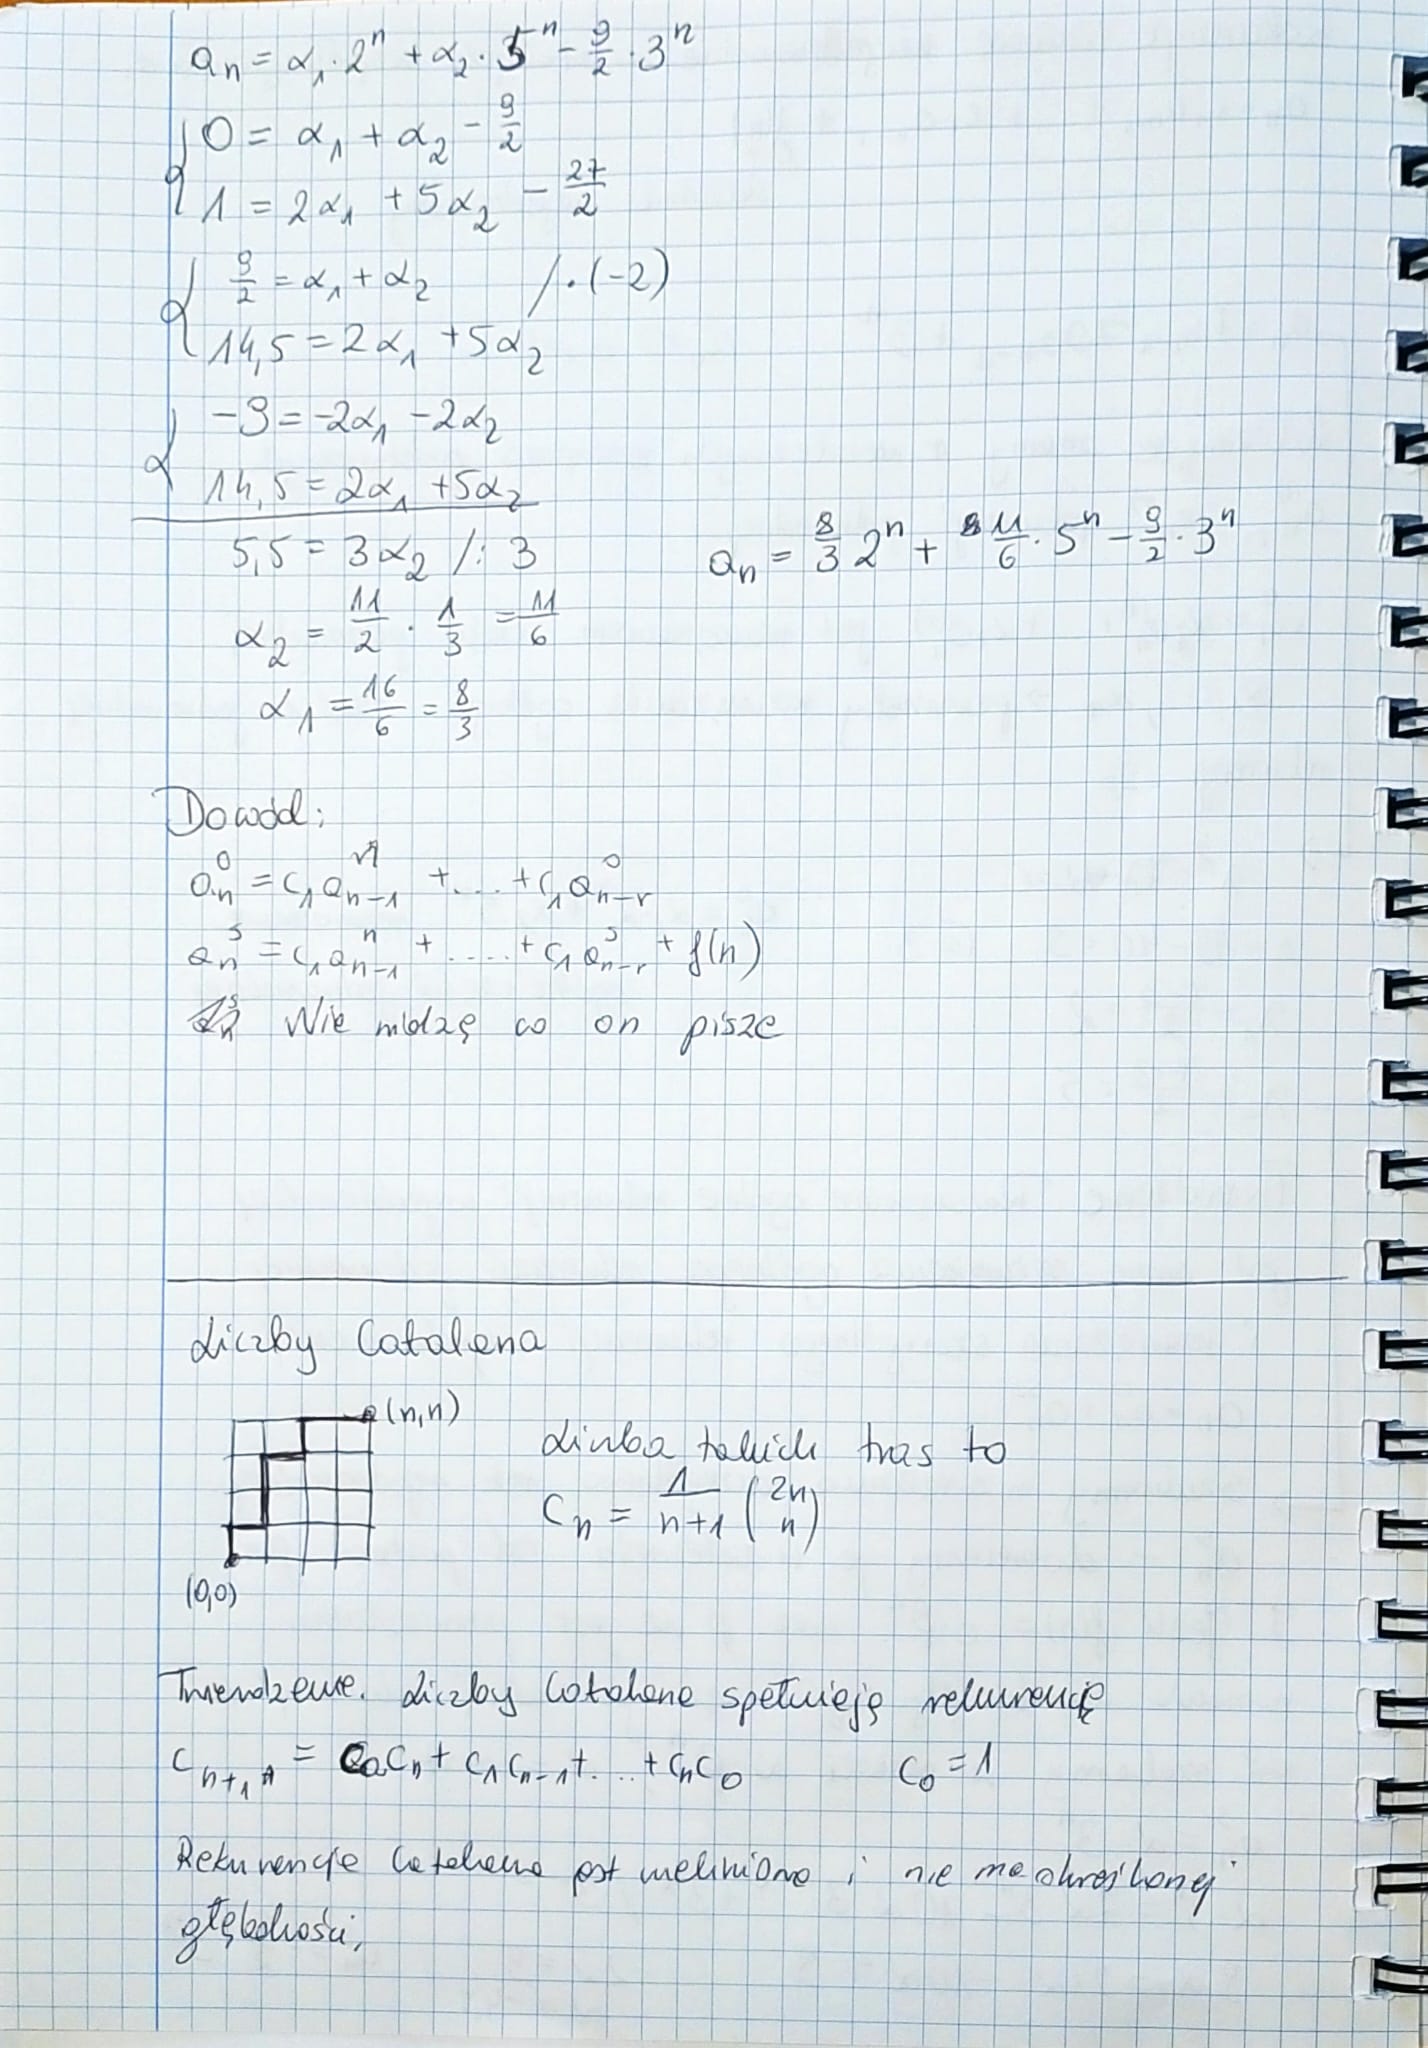 aₙ = α₁·2ⁿ + α₂·5ⁿ - 9/2·3ⁿ
{ 0 = α₁ + α₂ - 9/2
1 = 2α₁ + 5α₂ - 27/2
{ 9/2 = α₁ + α₂ /·(-2)
14,5 = 2α₁ + 5α₂
{ -9 = -2α₁ - 2α₂
14,5 = 2α₁ + 5α₂
5,5 = 3α₂ /: 3
aₙ = 8/3 2ⁿ + 11/6·5ⁿ - 9/2·3ⁿ
α₂ = 11/2 · 1/3 = 11/6
α₁ = 16/6 = 8/3
Dowód:
aₙ⁰ = c₁aₙ₋₁ⁿ + .... + c₁aₙ₋ᵣ⁰
aₙˢ = c₁aₙ₋₁ⁿ + ..... + c₁aₙ₋ᵣˢ + f(n)
Nie widzę co on pisze
Liczby Catalana
(n,n)
Liczba takich tras to
Cₙ = 1/(n+1) (2n n)
(0,0)
Twierdzenie. Liczby Catalana spełnieją rekurencję
Cₙ₊₁ = C₀Cₙ + C₁Cₙ₋₁ + ... + CₙC₀ C₀ = 1
Rekurencja Catalana jest nieliniowa i nie ma określonej
głębokości,